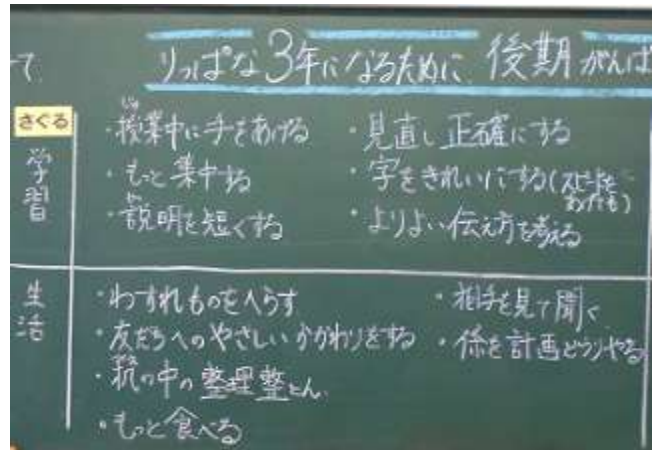 て
りっぱな3年になるために 後期 がんば
さぐる
学習
・授業中に手をあげる
・もっと集中する
・説明を短くする
・見直し正確にする
・字をきれいにする(スピードを
あげても)
・よりよい伝え方を考える
生活
・わすれものをへらす
・友だちへのやさしいかかわりをする
・机の中の整理整とん
・もっと食べる
・相手を見て聞く
・係を計画どうりやる